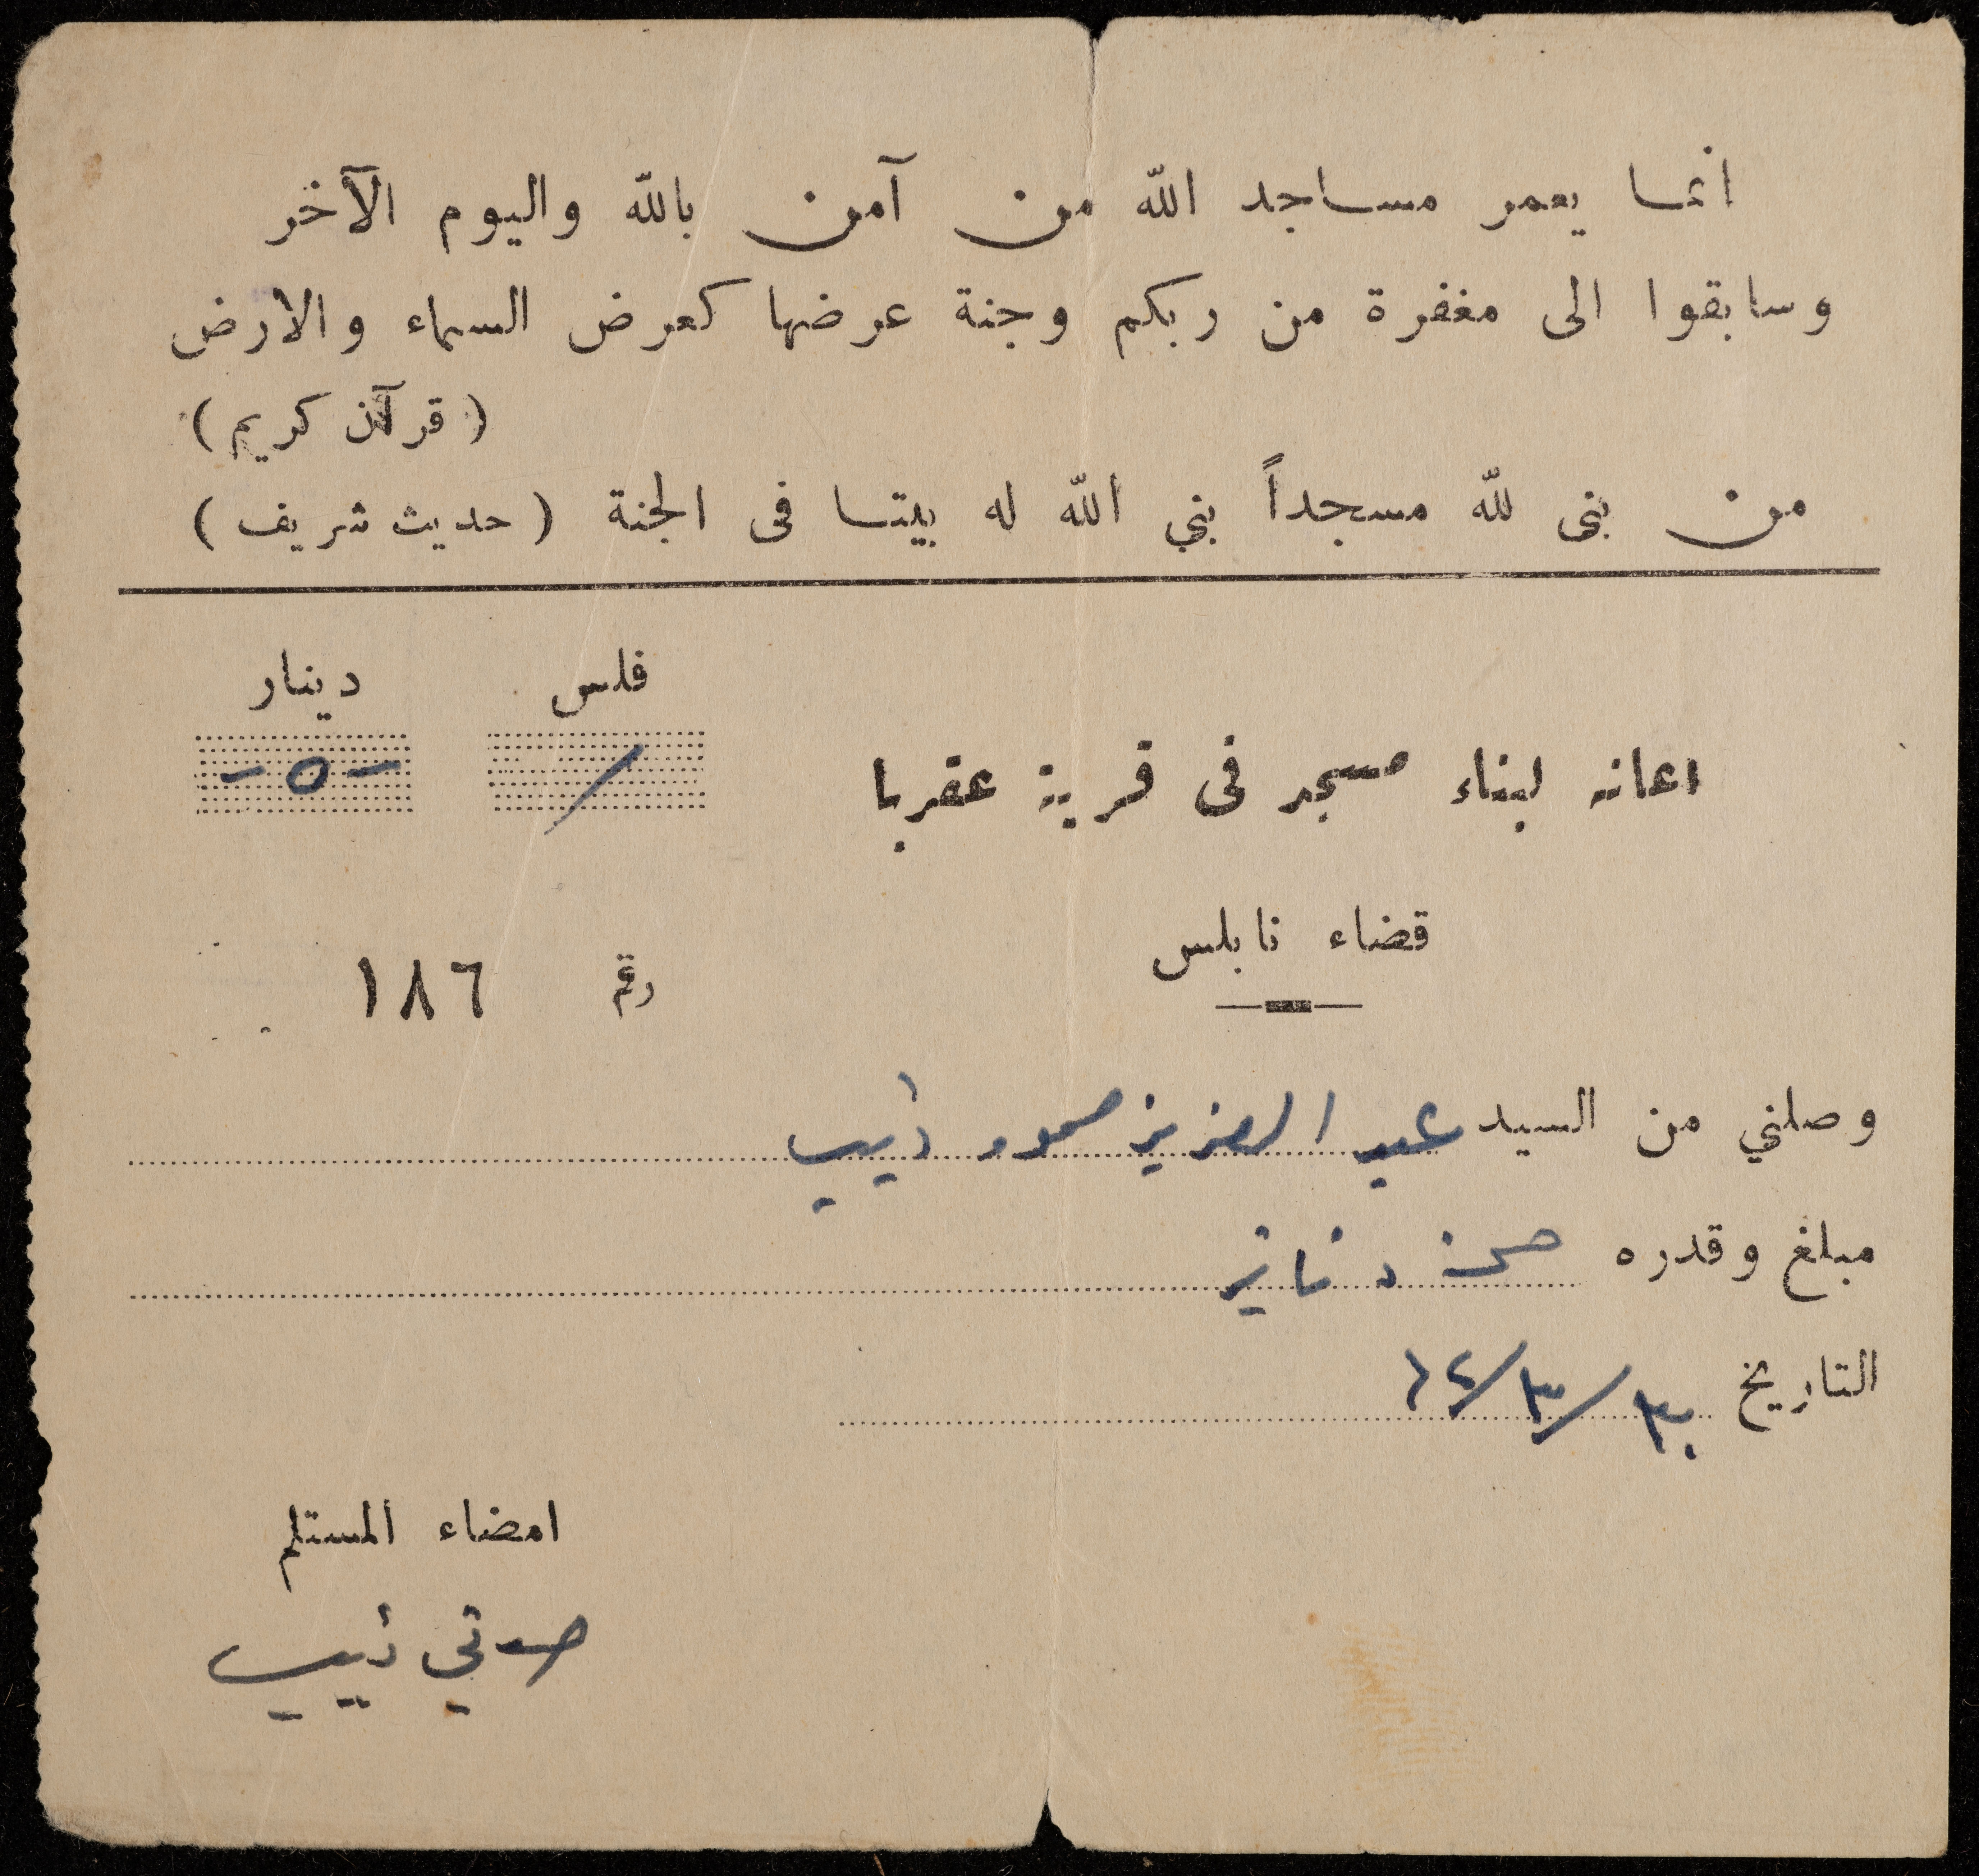 انما يعمر مساجد الله من آمن بالله واليوم الآخر
وسابقوا الى مغفرة من ربكم وجنة عرضها كعرض السماء والارض
( قرآن كريم )
من بنى لله مسجداً بني الله له بيتا فى الجنة ( حديث شريف )
فلس دينار
اعانة لبناء مسجد فى قرية عقربا / -٥-
قضاء نابلس
رقم ١٨٦
وصلني من السيد عبد العزيز محمود ذيب
مبلغ وقدره خمسة دنانير
التاريخ ٣٠/٣/
امضاء المستلم
صدقي ذيب